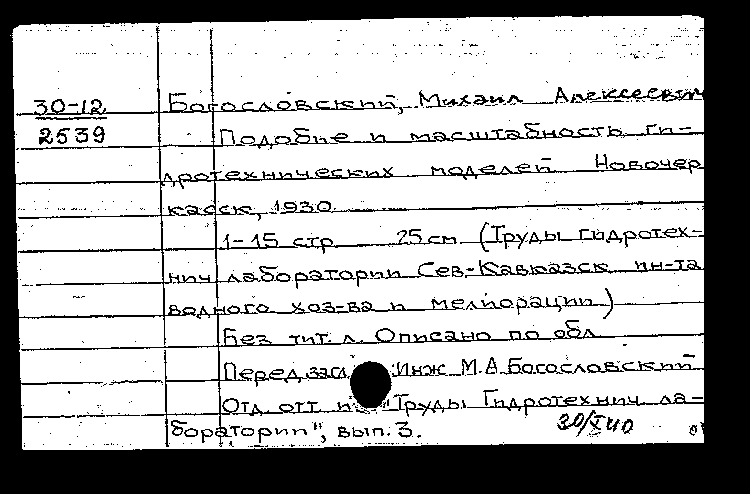 30-12 Богословский, Михаил Алексеевич
2539 Подобие и масштабность ги-
дротехнических моделей Новочер
касск, 1930
1-15 стр 25 см (Труды Гидротех-
нич лаборатории Сев-Кавказск ин-та
водного хоз-ва и мелиорации)
Без тит. л. Описано по обл
Перед загл Инж М.А Богословский
Отд отт из "Труды Гидротехнич ла-
боратории", вып. 3.